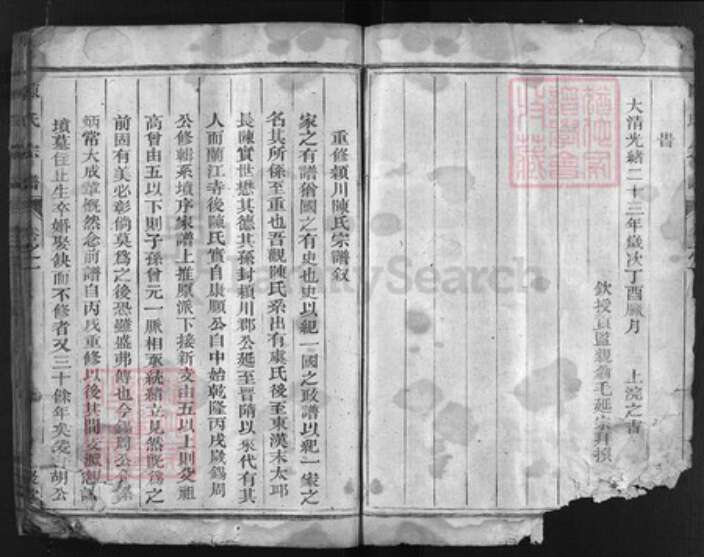 旹
大清光緒二十三年歲次丁酉臘月 上浣之吉
欽授貢監親翁毛延宗拜撰
重修潁川陳氏宗譜叙
家之有譜猶國之有史也史以紀一國之政譜以紀一家之
名其所係至重也吾觀陳氏系出有虞氏後至東漢末太邱
長陳實世懋其德其孫封潁川郡公延至晉隋以來代有其
人而蘭江寺後陳氏實自康順公自中始乾隆丙戌歲錫周
公修輯系墳序家譜上推原派下接新支由五以上則父祖
高曾由五以下則子孫曾元一脈相承統緒立見然旣爲之
前固有美必彰倘莫爲之後恐雖盛弗傳也今錫周公
炳常大成章慨然念前譜自丙戌重修以後其間支派
墳墓住止生卒婚娶缺而不修者又三十餘年矣爰 胡公
陳氏宗譜
FamilySearch